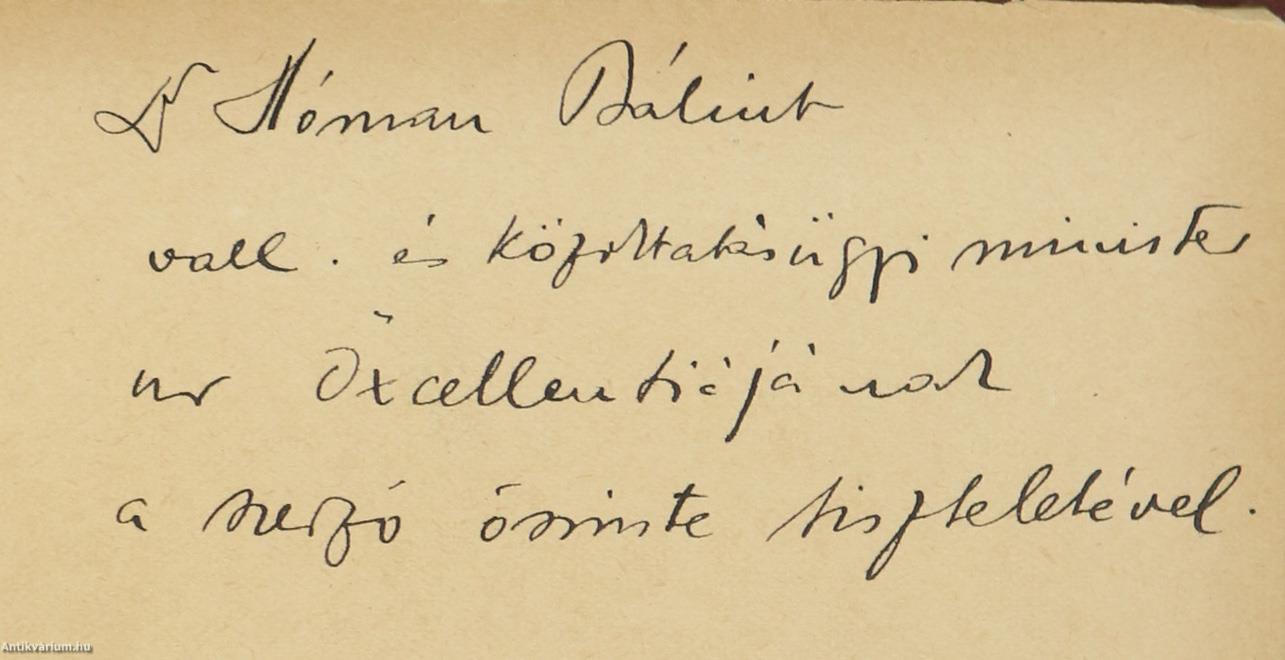 Dr Hóman Bálint
vall. és közoktatásügyi minister
ur Őxcellentiájának
a szerző őszinte tiszteletével.
Antikvárium.hu